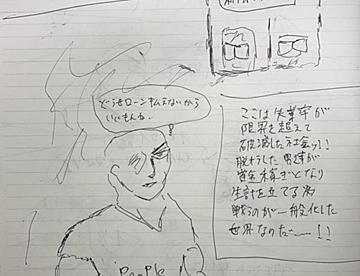 どうせローン払えないから
いいもんね。
ここは失業率が
限界を超えて
破滅した社会ッ!!
脱サラした男達が
賞金稼ぎとなり
生計を立てる為
戦うのが一般化した
世界なのだ──!!
PeoPle